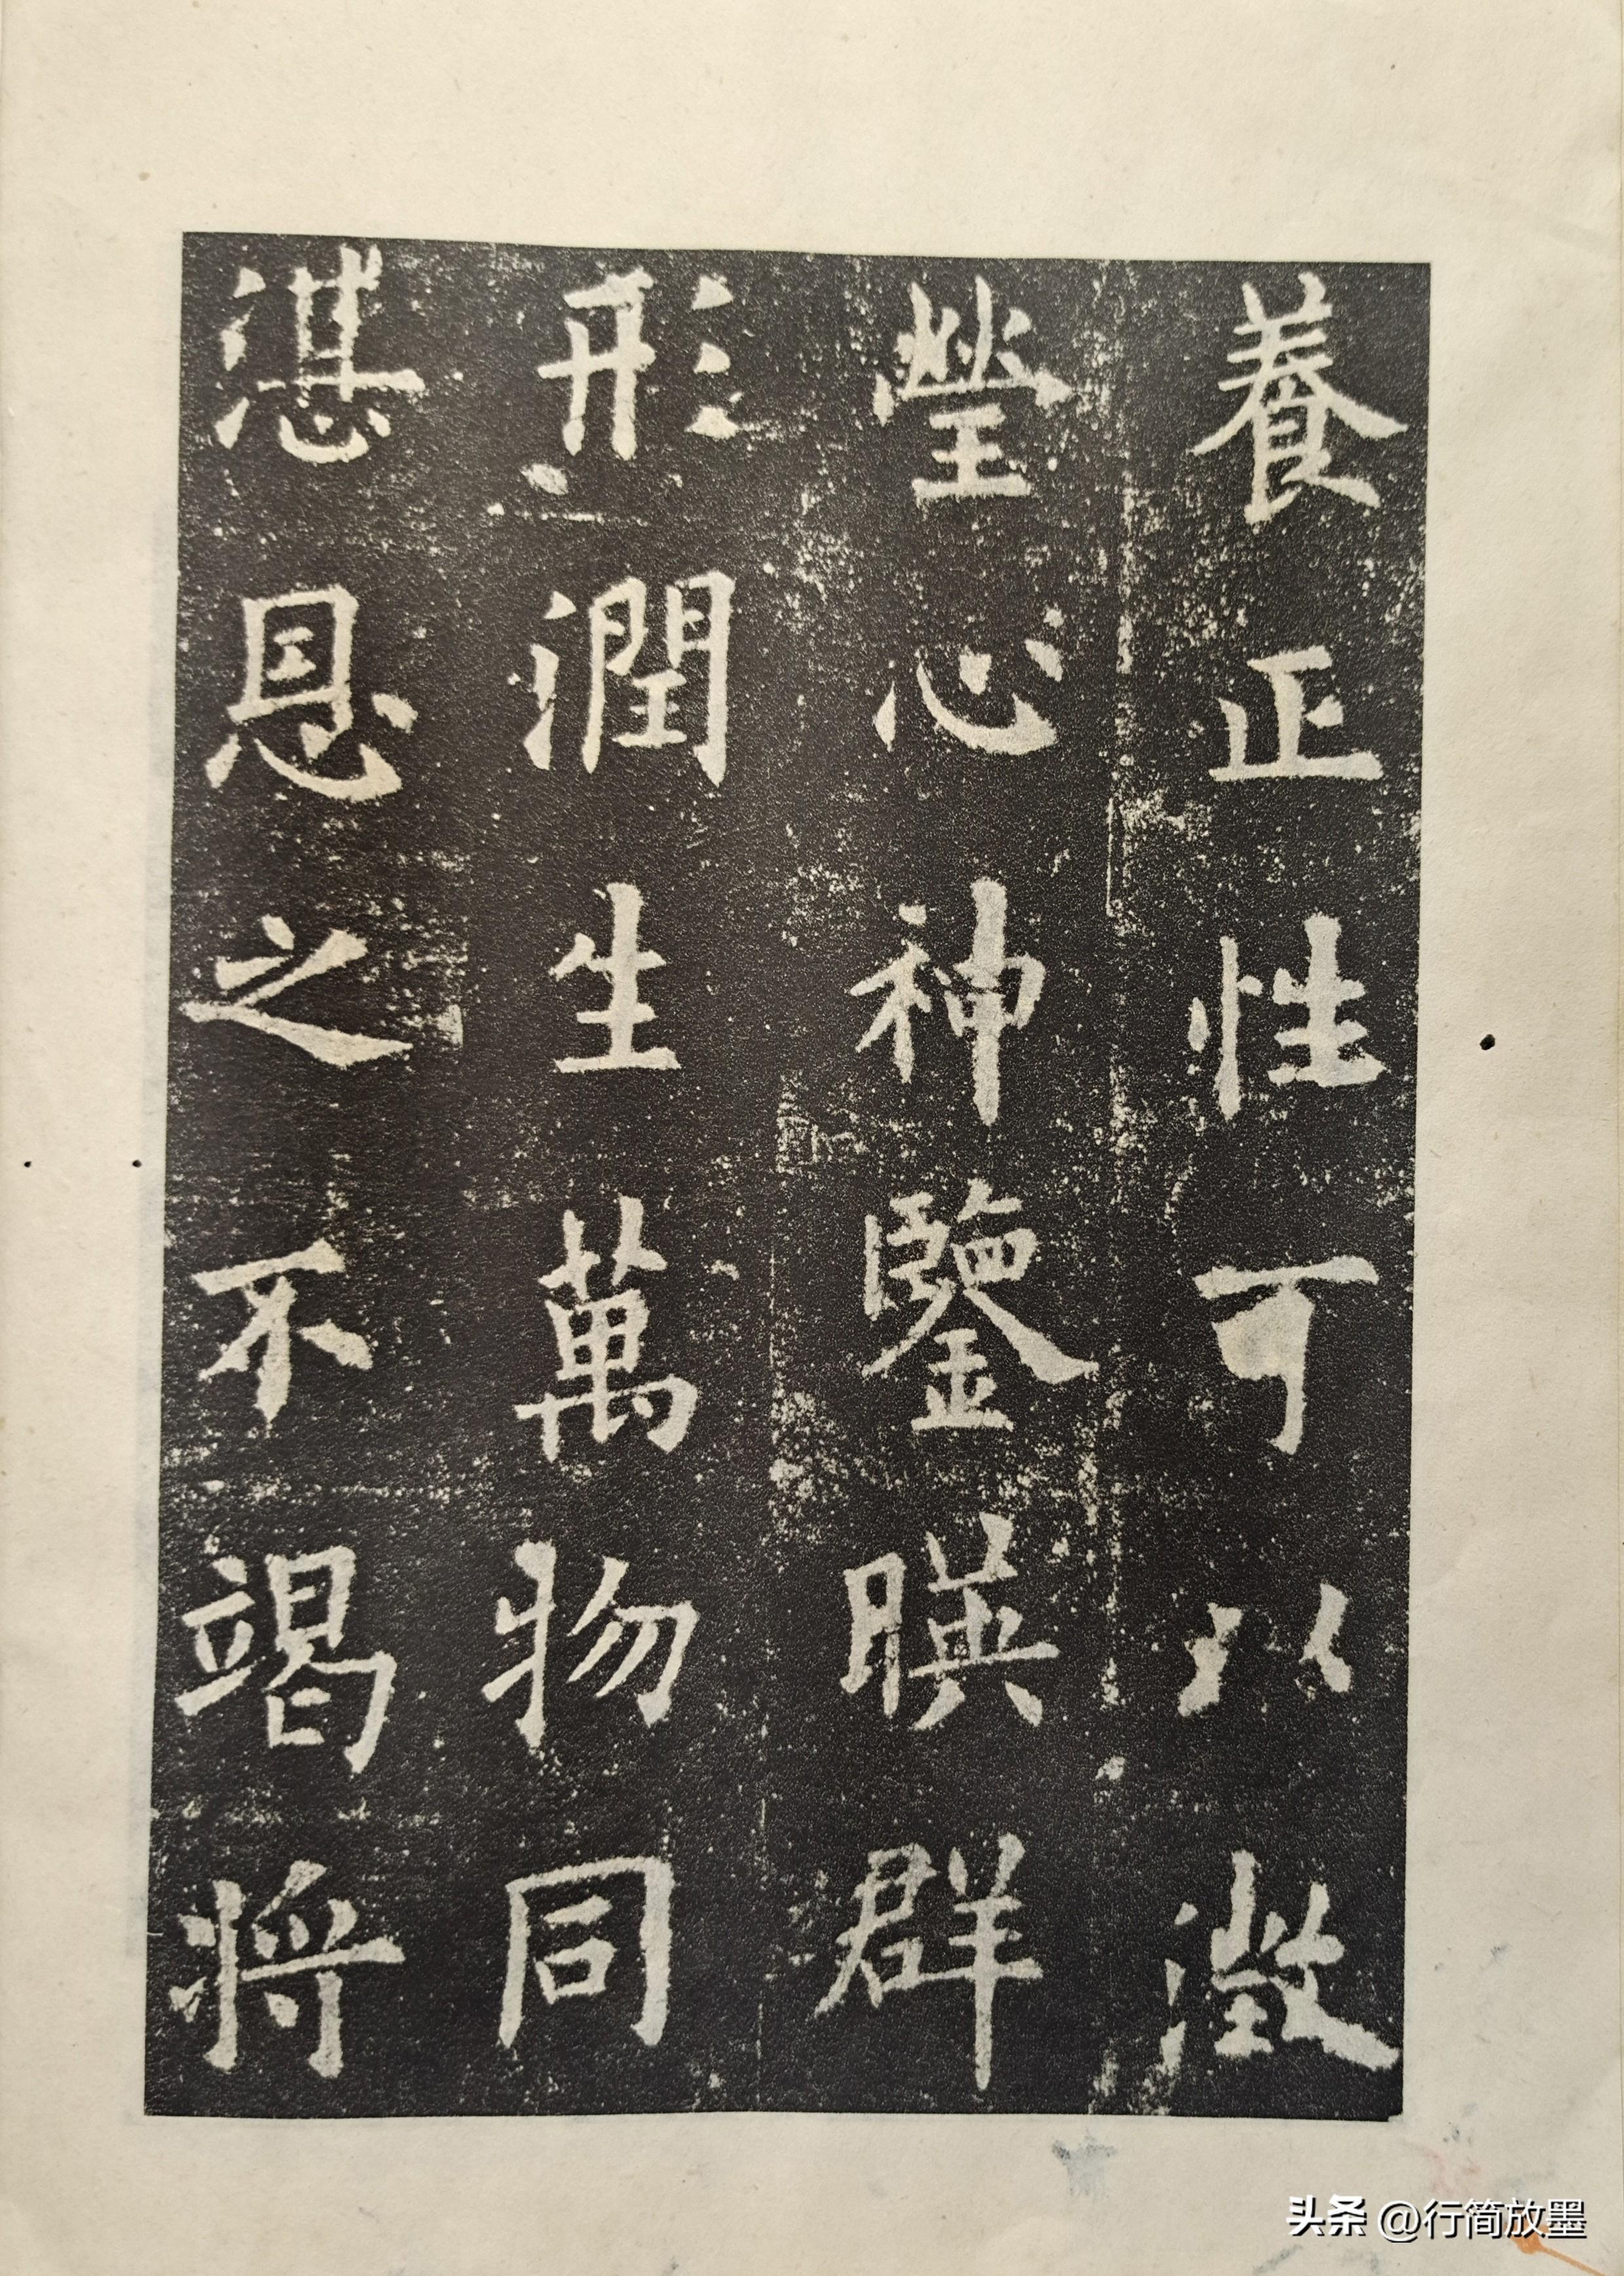 養正性可以澂
瑩心神鑒暎群
形潤生萬物同
湛恩之不竭將
头条 @行简放墨